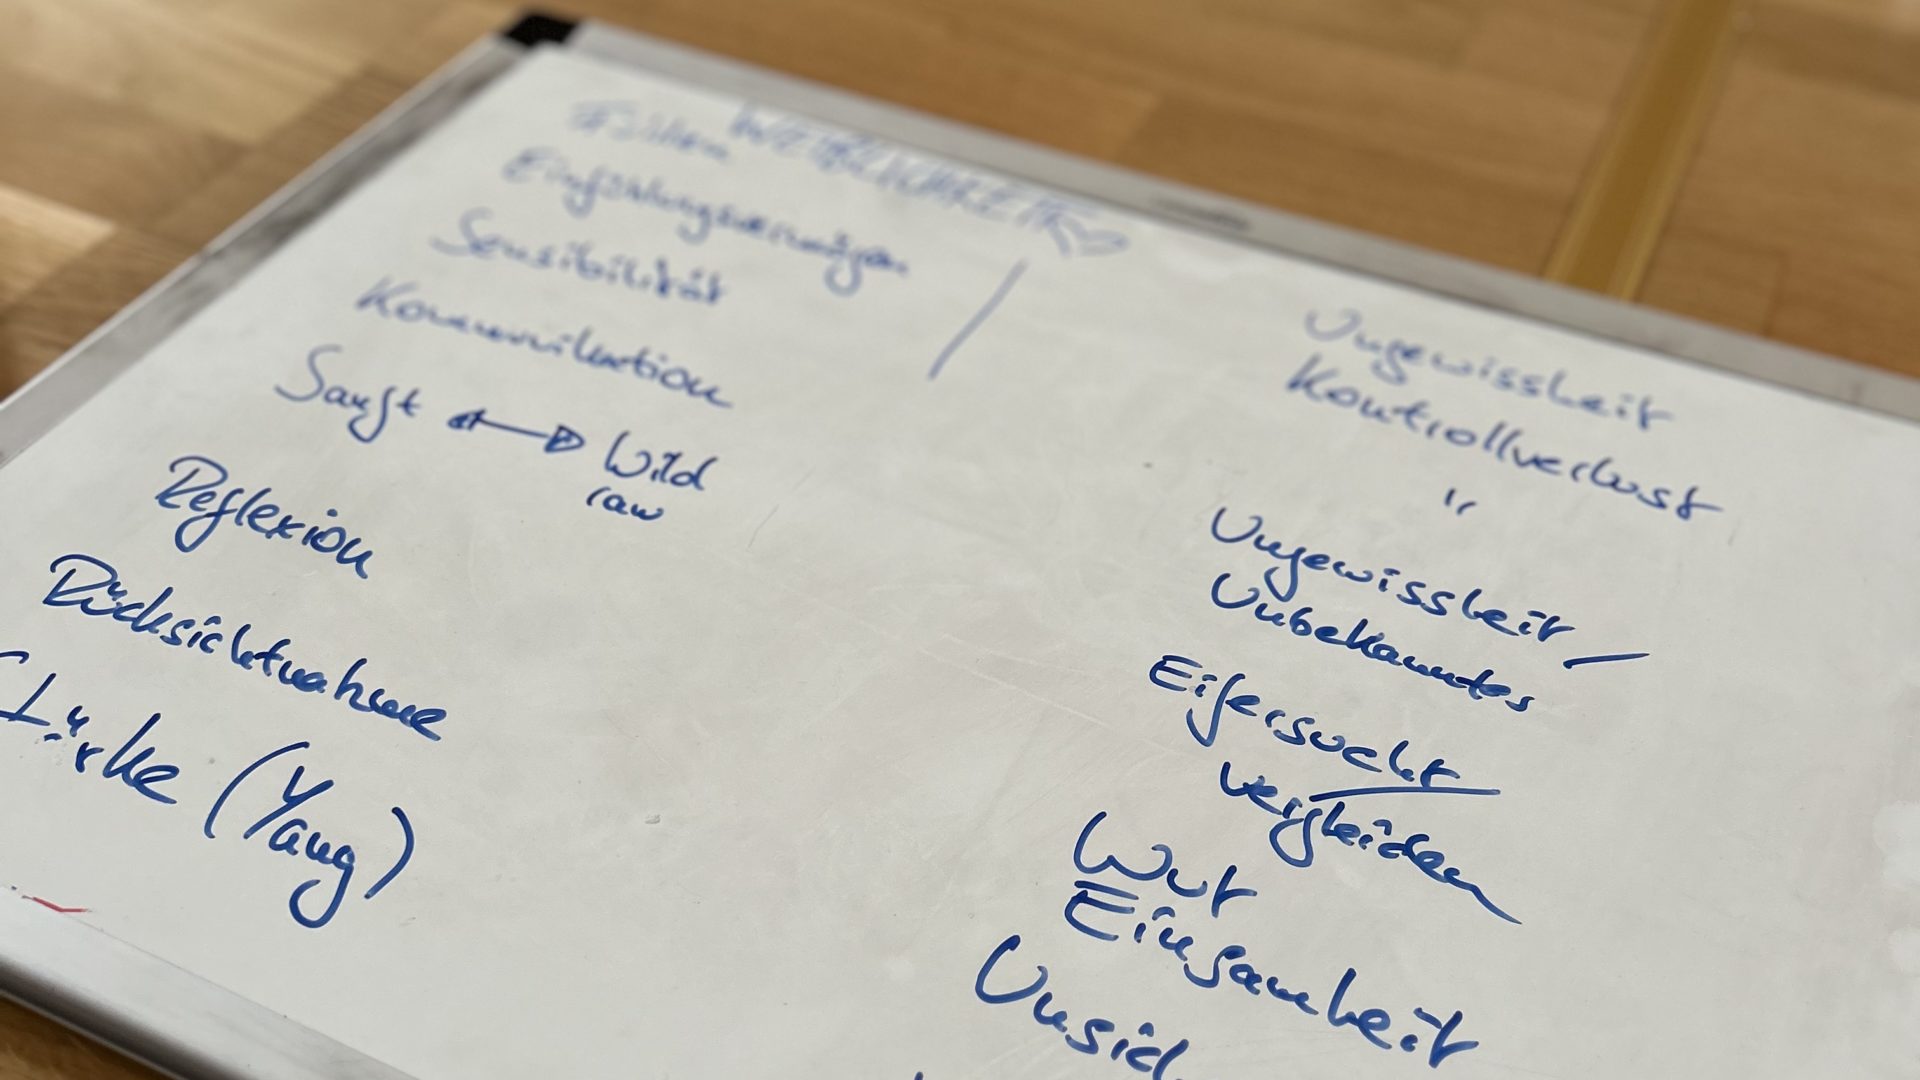 WEIBLICHKEIT
Fühlen
Einfühlungsvermögen
Sensibilität
Kommunikation
Sanft ↔ Wild
raw
Reflexion
Rücksichtnahme
Stärke (Yang)
Ungewissheit
Kontrollverlust
"
Ungewissheit /
Unbekanntes
Eifersucht
vergleichen
Wut
Einsamkeit
Unsich